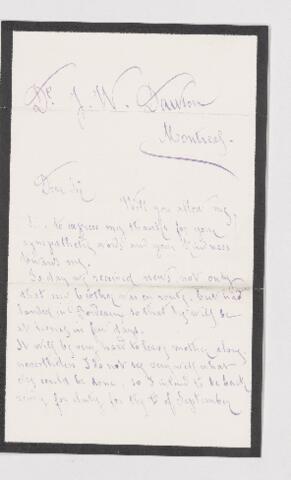 Dr. J. W. Dawson
Montreal.
Dear Sir
Will you allow my,
to express my thanks for your
sympathetic words and your kindness
toward my.
To day we received news not only
that my brother was on route, but had
landed in Bordeaux so that he will be
at home in few days.
It will be very hard to leave mother alone
nevertheless I do not see very well what
else could be done, so I intend to be back
ready for duty for the of September